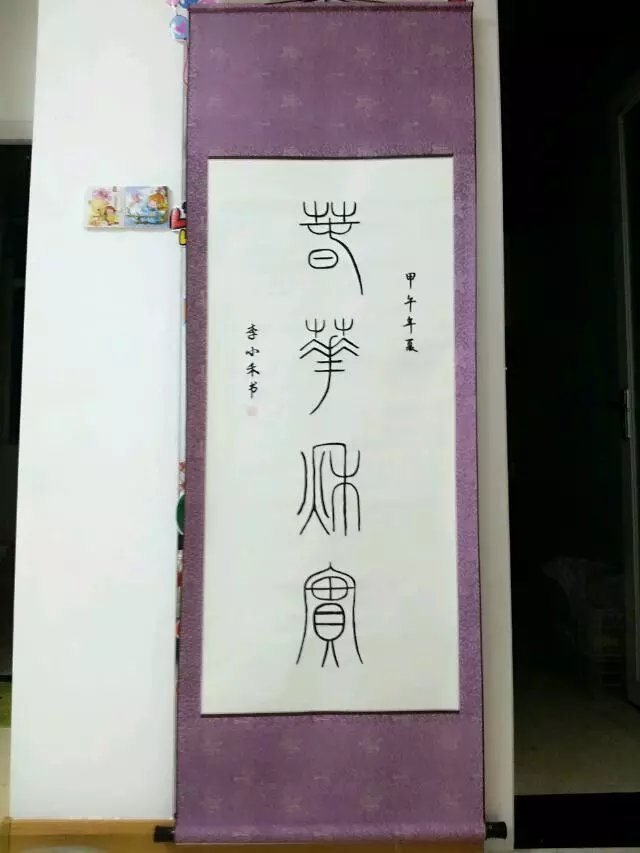 春華秋實
甲午年夏
李小禾书